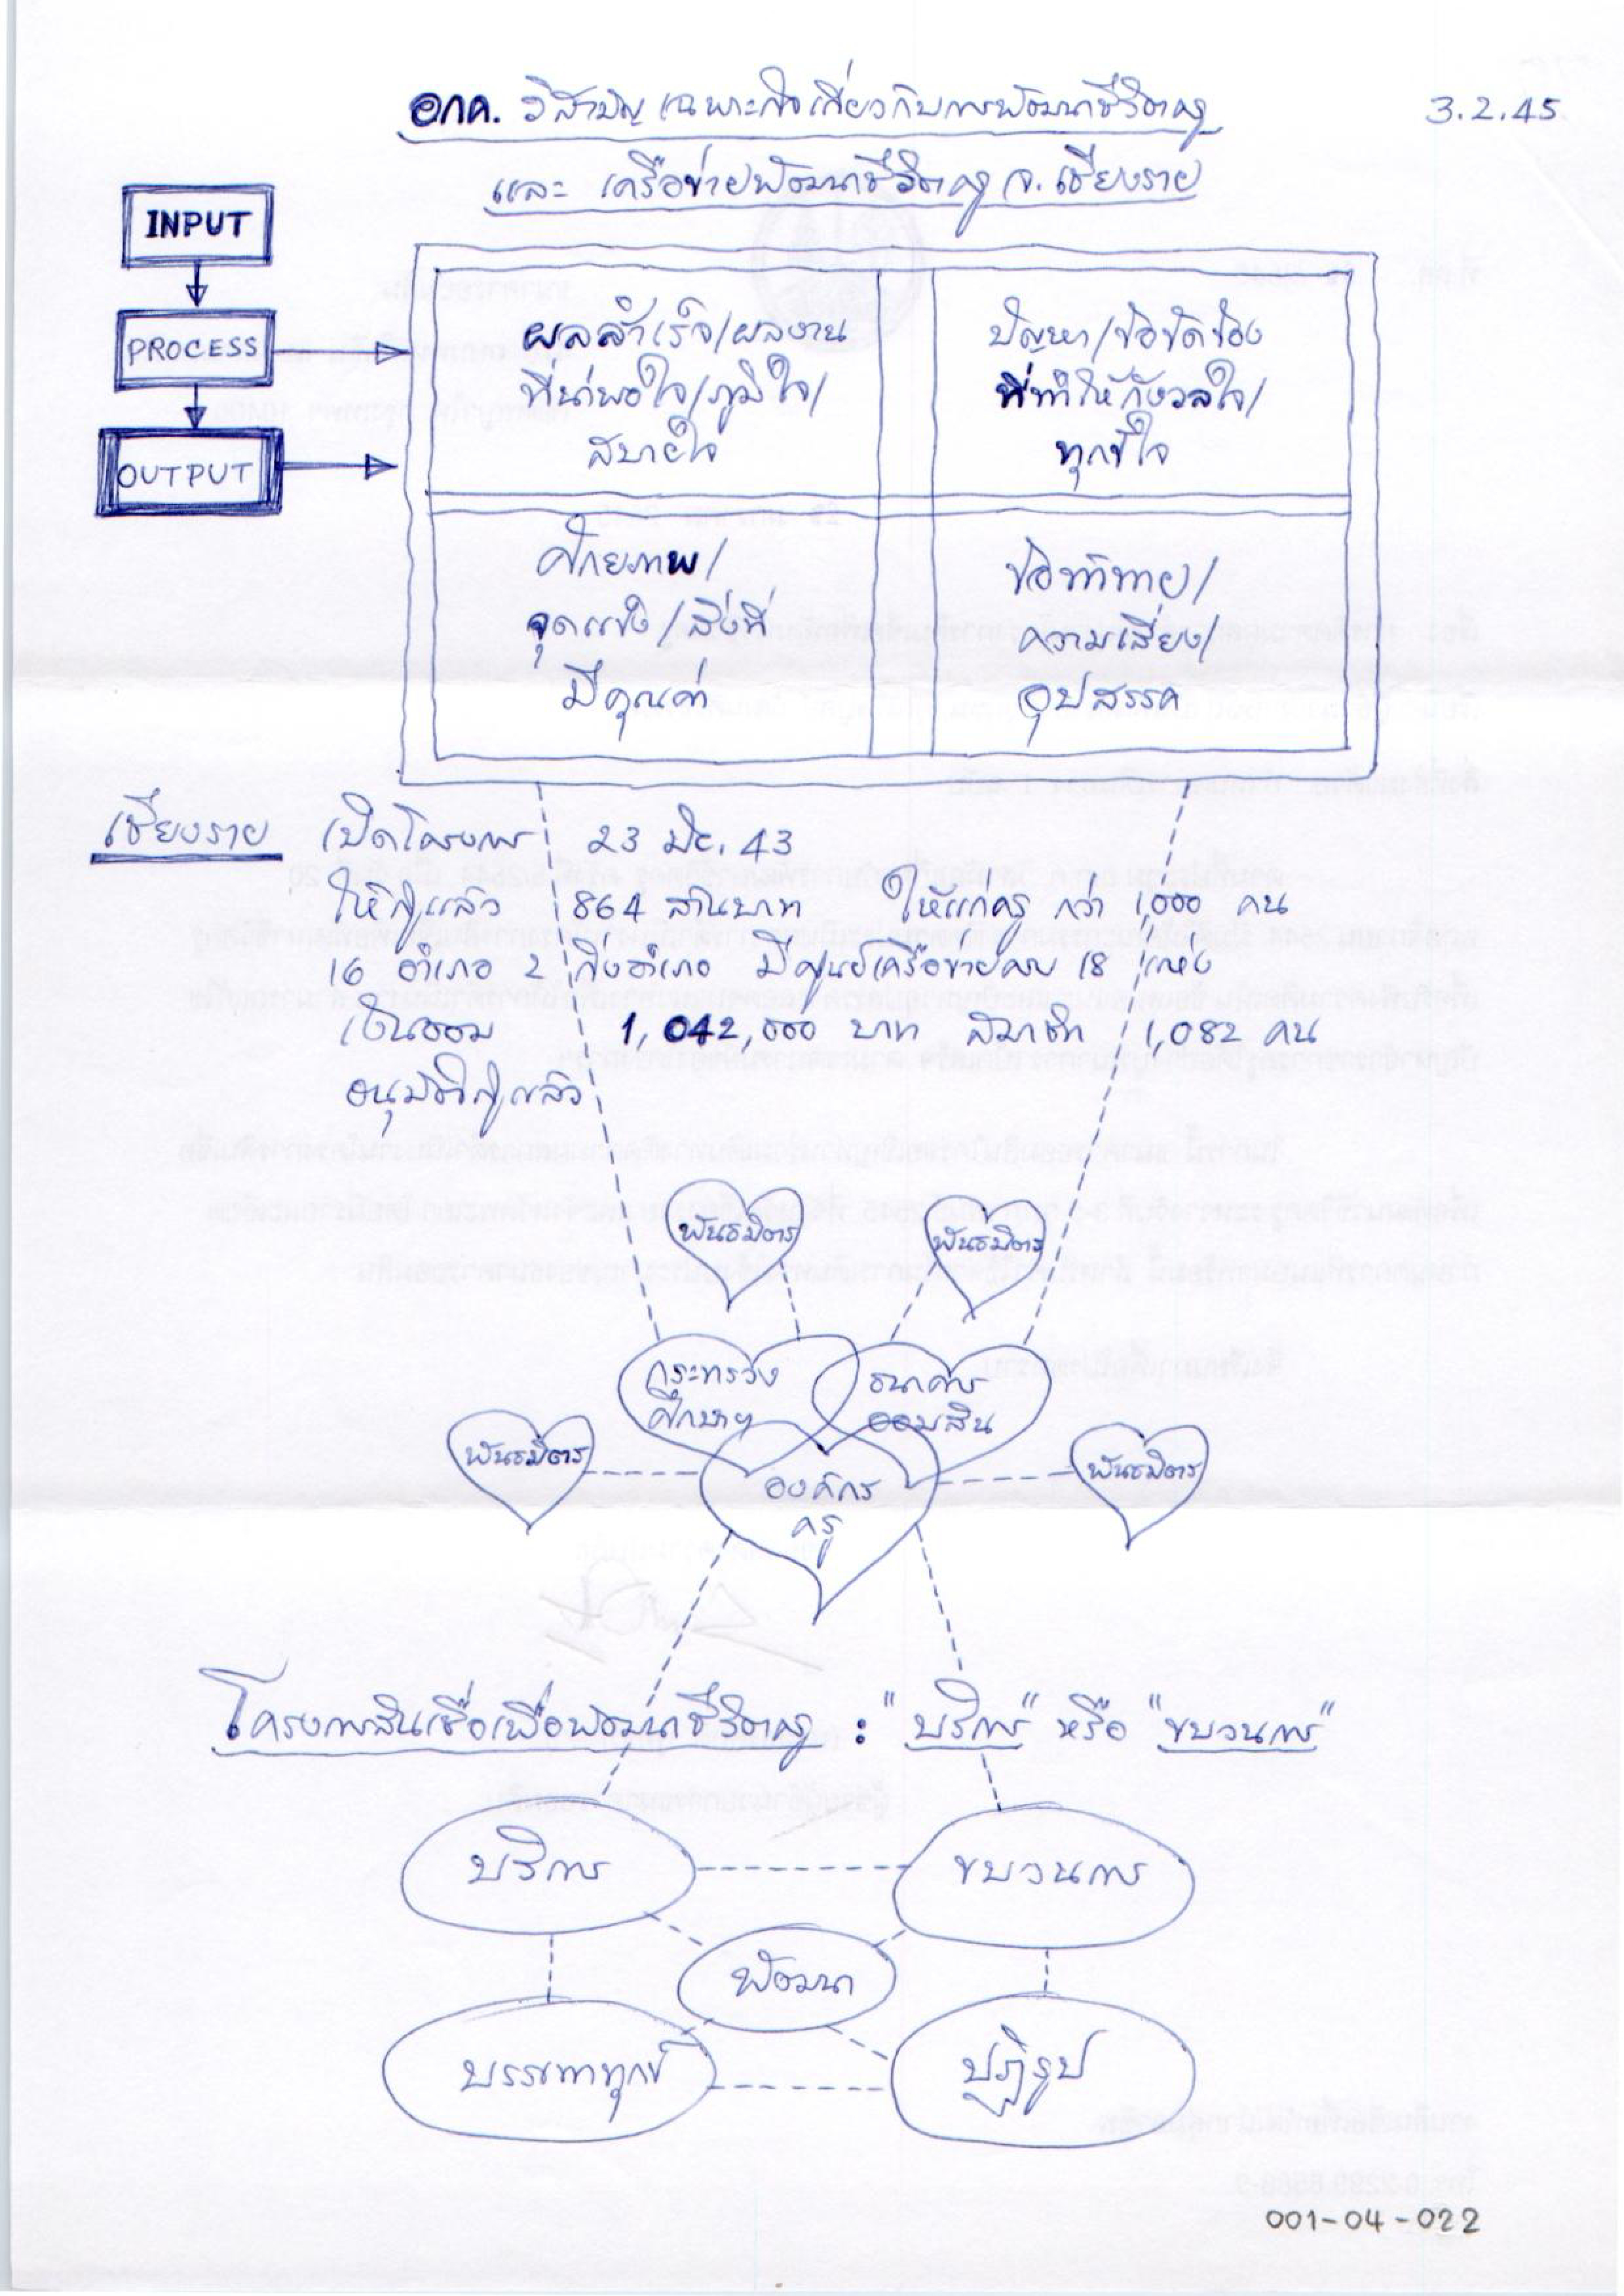 อกค. วิสามัญเฉพาะกิจเกี่ยวกับการพัฒนาชีวิตครู
3.2.45
และ เครือข่ายพัฒนาชีวิตครู จ. เชียงราย
INPUT
PROCESS
OUTPUT
ผลสำเร็จ/ผลงาน
ที่น่าพอใจ/ภูมิใจ/
สบายใจ
ปัญหา/ข้อขัดข้อง
ที่ทำให้กังวลใจ/
ทุกข์ใจ
ศักยภาพ/
จุดแข็ง/สิ่งที่
มีคุณค่า
ข้อท้าทาย/
ความเสี่ยง/
อุปสรรค
เชียงราย เปิดโครงการ 23 มิย. 43
ให้กู้แล้ว 864 ล้านบาท ให้แก่ครู กว่า 1,000 คน
16 อำเภอ 2 กิ่งอำเภอ มีศูนย์เครือข่ายครบ 18 แห่ง
เงินออม 1,042,000 บาท สมาชิก 1,082 คน
อนุมัติกู้แล้ว
พันธมิตร
พันธมิตร
กระทรวง
ศึกษาฯ
ธนาคาร
ออมสิน
พันธมิตร
พันธมิตร
องค์กร
ครู
โครงการสินเชื่อเพื่อพัฒนาชีวิตครู : "บริการ" หรือ "ขบวนการ"
บริการ
ขบวนการ
พัฒนา
บรรเทาทุกข์
ปฏิรูป
001-04-022